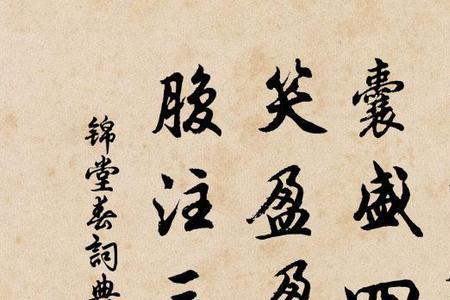 囊盛四
笑盈盈
腹注
錦堂春詞典